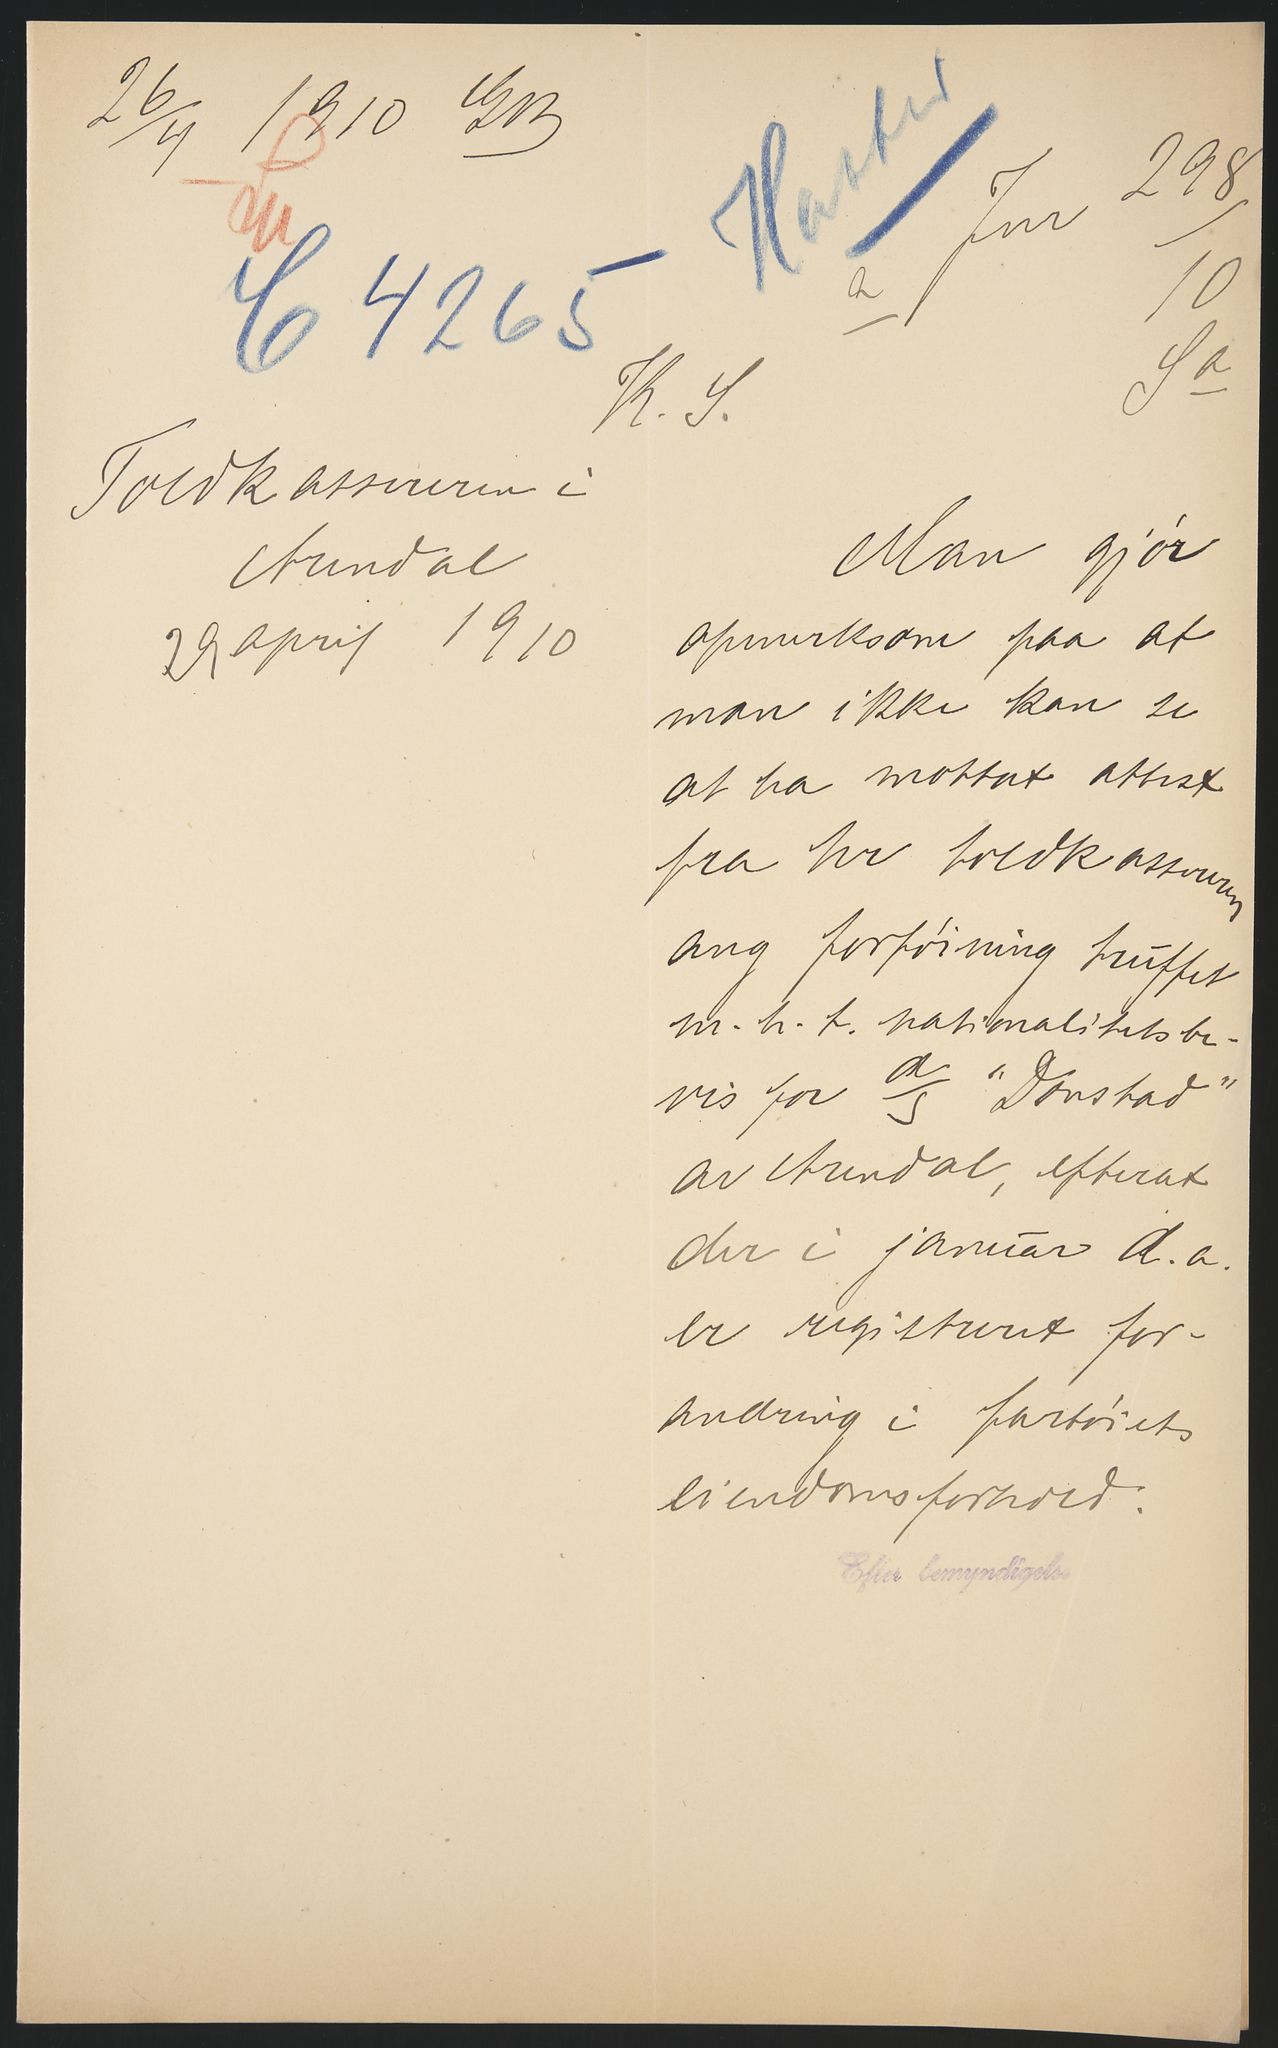 26/4 1910
C 4265
Haster
Jnr 298/10
a
Sa
K. S.
Toldkassereren i
Arendal
29 april 1910
Man gjör
opmerksom paa at
man ikke kan se
at ha mottat attest
fra hr toldkassereren
ang forföining truffet
m. h. t. nationalitetsbe-
vis for d/s "Dönstad"
av Arendal, efterat
der i januar d. a.
er registreret for-
andring i fartöiets
eiendomsforhold.
Efter bemyndigelse